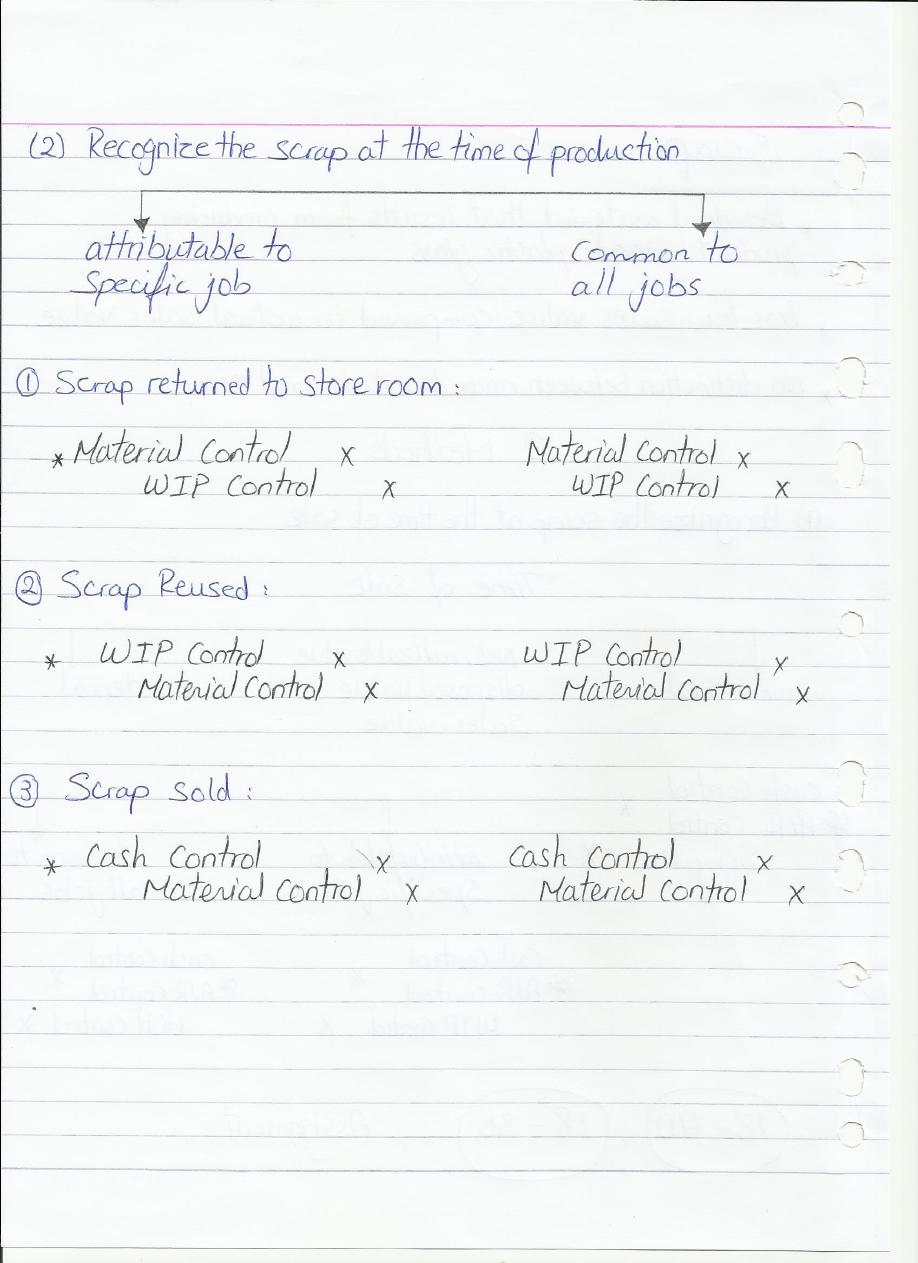 (2) Recognize the scrap at the time of production
attributable to
specific job
Common to
all jobs
① Scrap returned to store room :
* Material Control x
WIP Control x
Material Control x
WIP Control x
② Scrap Reused :
* WIP Control x
Material Control x
WIP Control x
Material Control x
③ Scrap sold :
* Cash Control x
Material Control x
Cash Control x
Material Control x